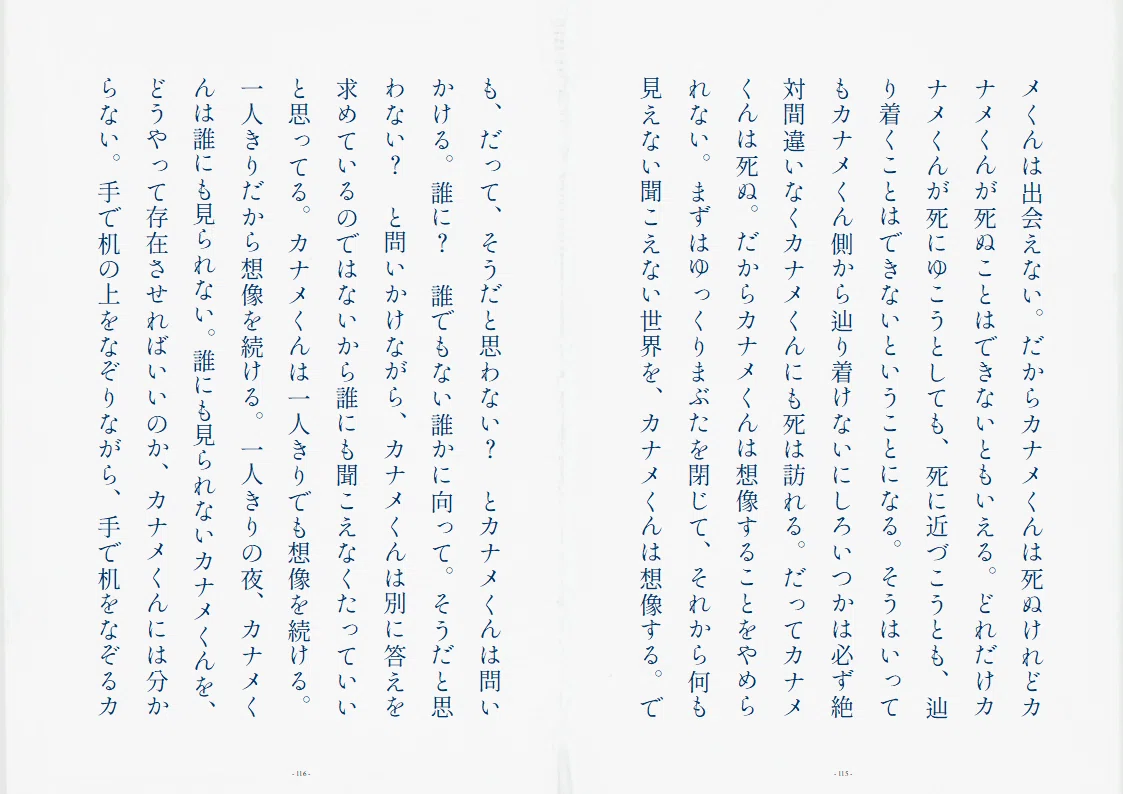 メくんは出会えない。だからカナメくんは死ぬけれどカ
ナメくんが死ぬことはできないともいえる。どれだけカ
ナメくんが死にゆこうとしても、死に近づこうとも、辿
り着くことはできないということになる。そうはいって
もカナメくん側から辿り着けないにしろいつかは必ず絶
対間違いなくカナメくんにも死は訪れる。だってカナメ
くんは死ぬ。だからカナメくんは想像することをやめら
れない。まずはゆっくりまぶたを閉じて、それから何も
見えない聞こえない世界を、カナメくんは想像する。で
- 115 -
も、だって、そうだと思わない？　とカナメくんは問い
かける。誰に？　誰でもない誰かに向って。そうだと思
わない？　と問いかけながら、カナメくんは別に答えを
求めているのではないから誰にも聞こえなくたっていい
と思ってる。カナメくんは一人きりでも想像を続ける。
一人きりだから想像を続ける。一人きりの夜、カナメく
んは誰にも見られない。誰にも見られないカナメくんを、
どうやって存在させればいいのか、カナメくんには分か
らない。手で机の上をなぞりながら、手で机をなぞるカ
- 116 -